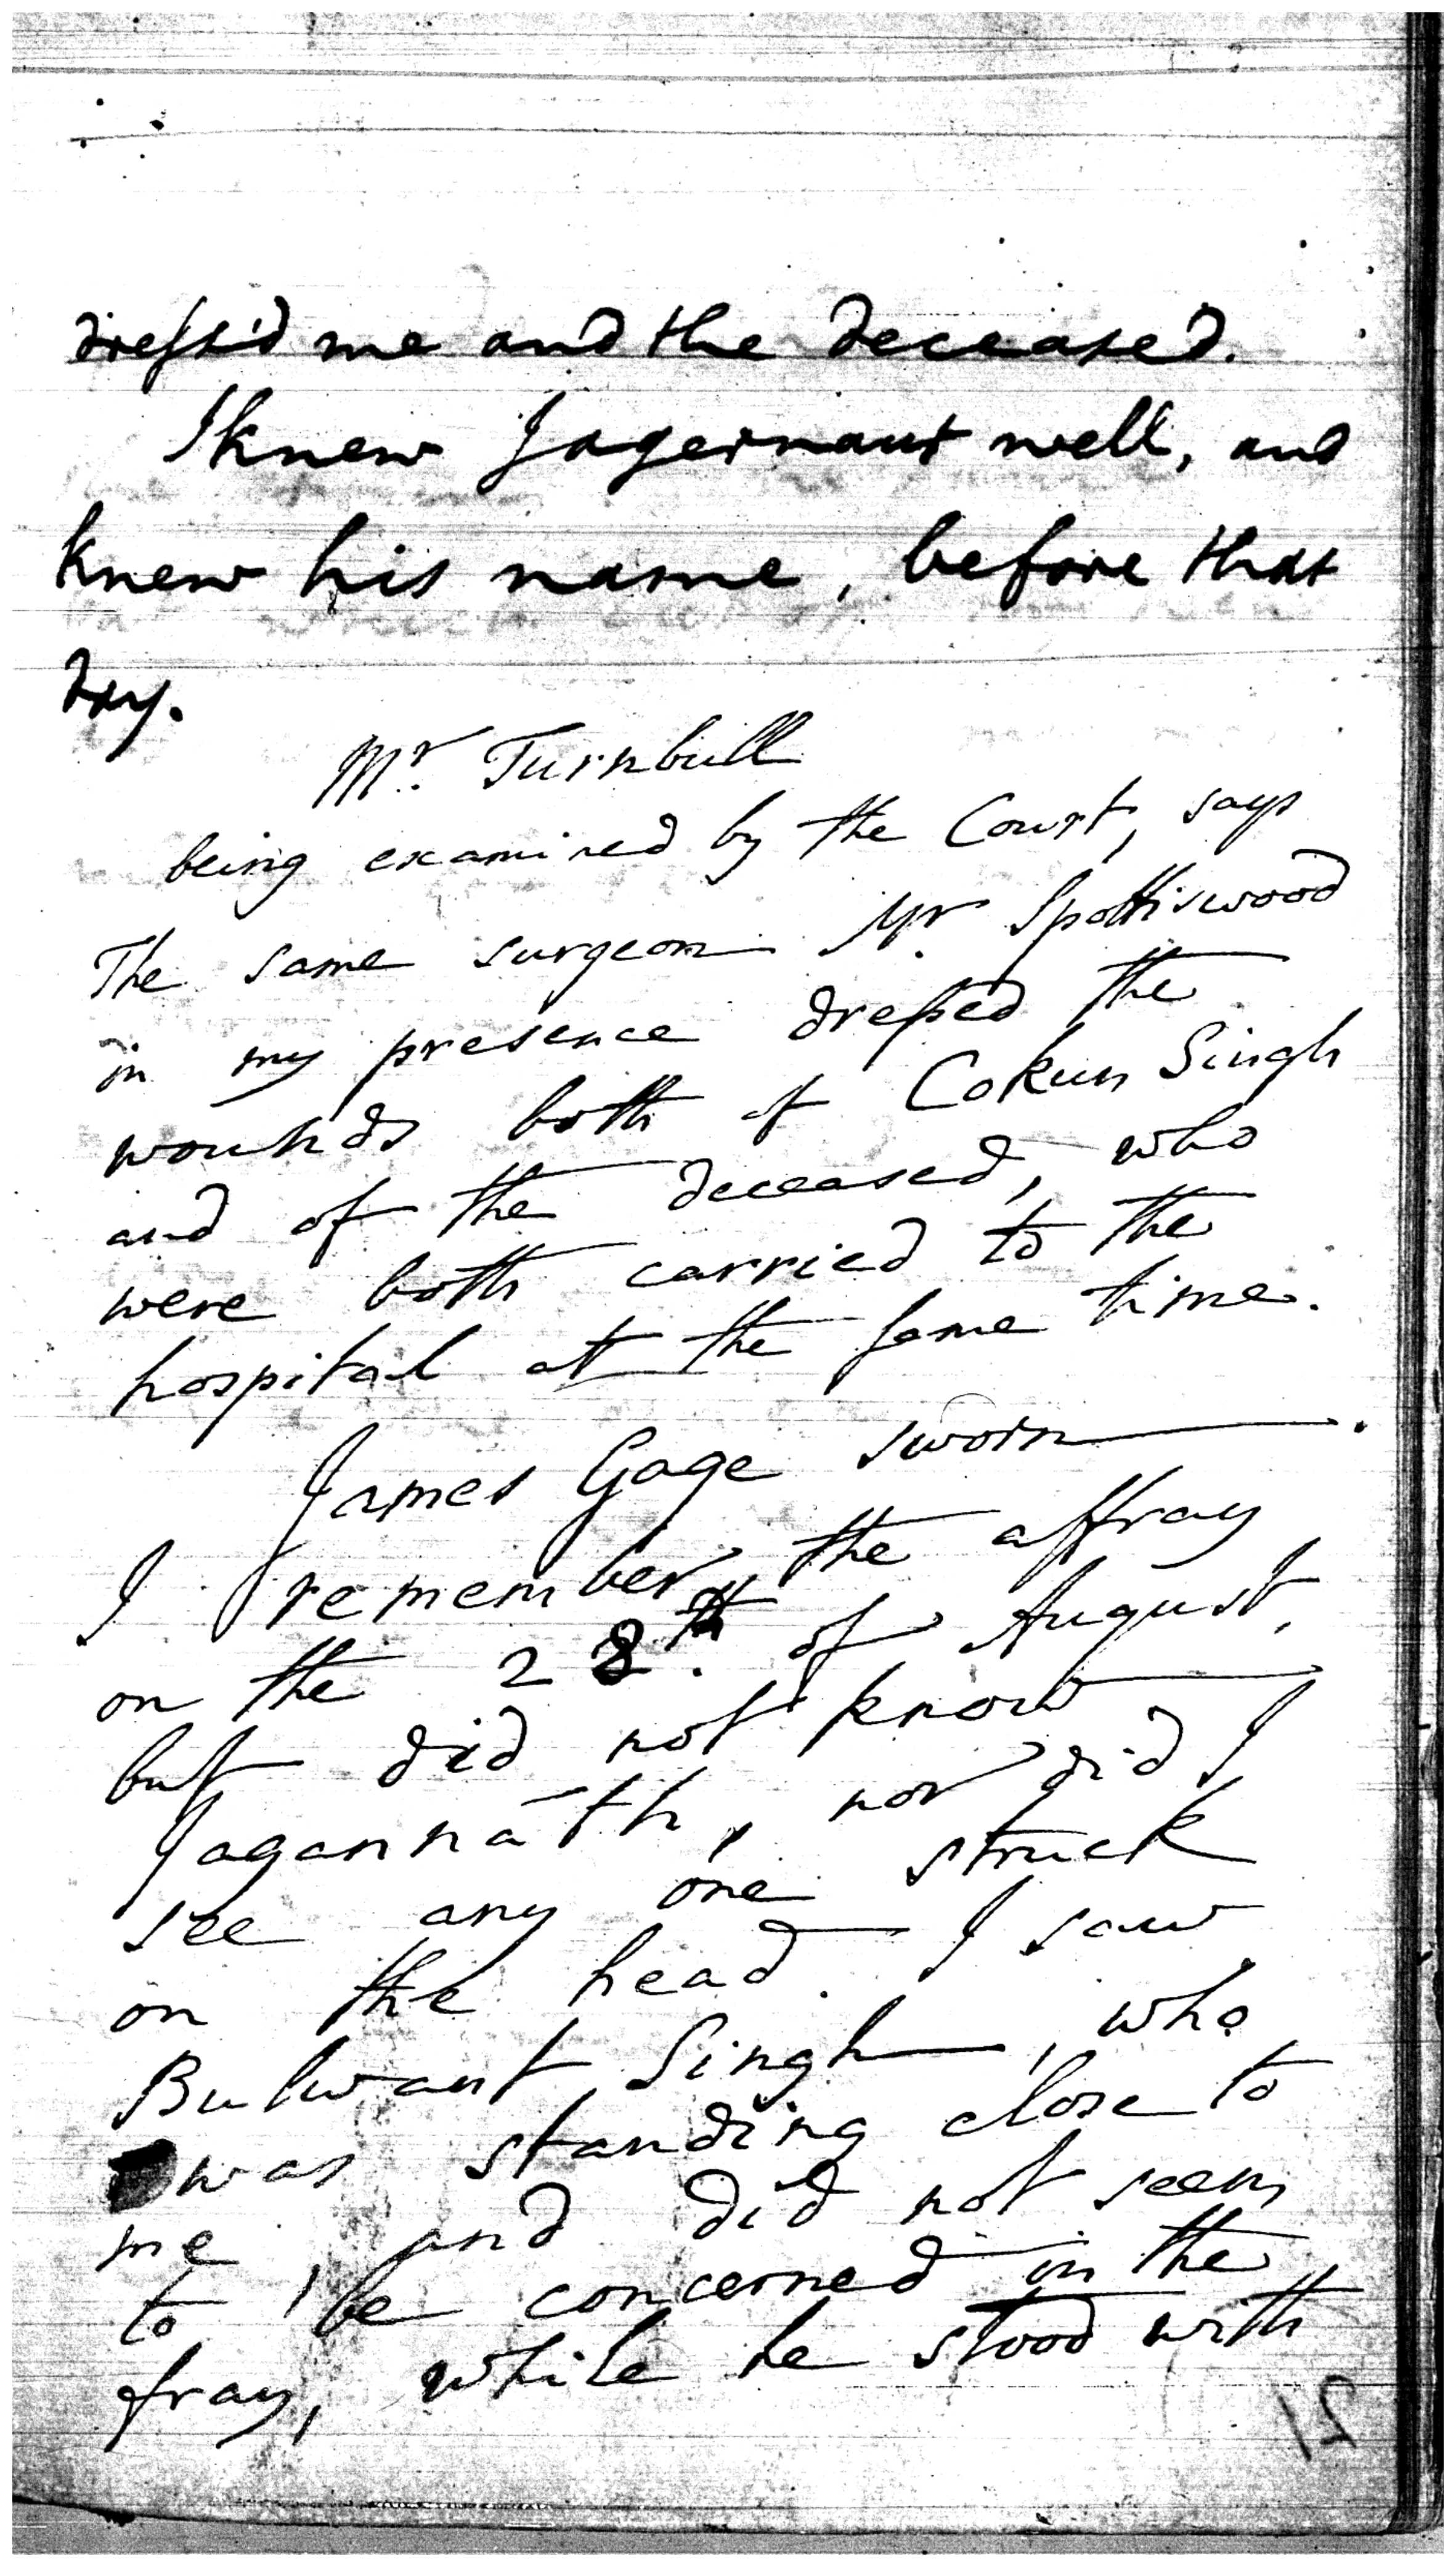 dress'd me and the deceased.
I knew Jagernaut well, and
knew his name, before that
day.
Mr. Turnbull
being examined by the Court, says
The same surgeon Mr. Spottiswood
in my presence dressed the
wounds both of Cokun Singh
and of the deceased, who
were both carried to the
hospital at the same time.
James Gage sworn.
I remember the affray
on the 28.th of August,
but did not know
Jagannáth, nor did I
see any one struck
on the head. I saw
Bulwant Singh, who
was standing close to
me, and did not seem
to be concerned in the
fray, while he stood with
21